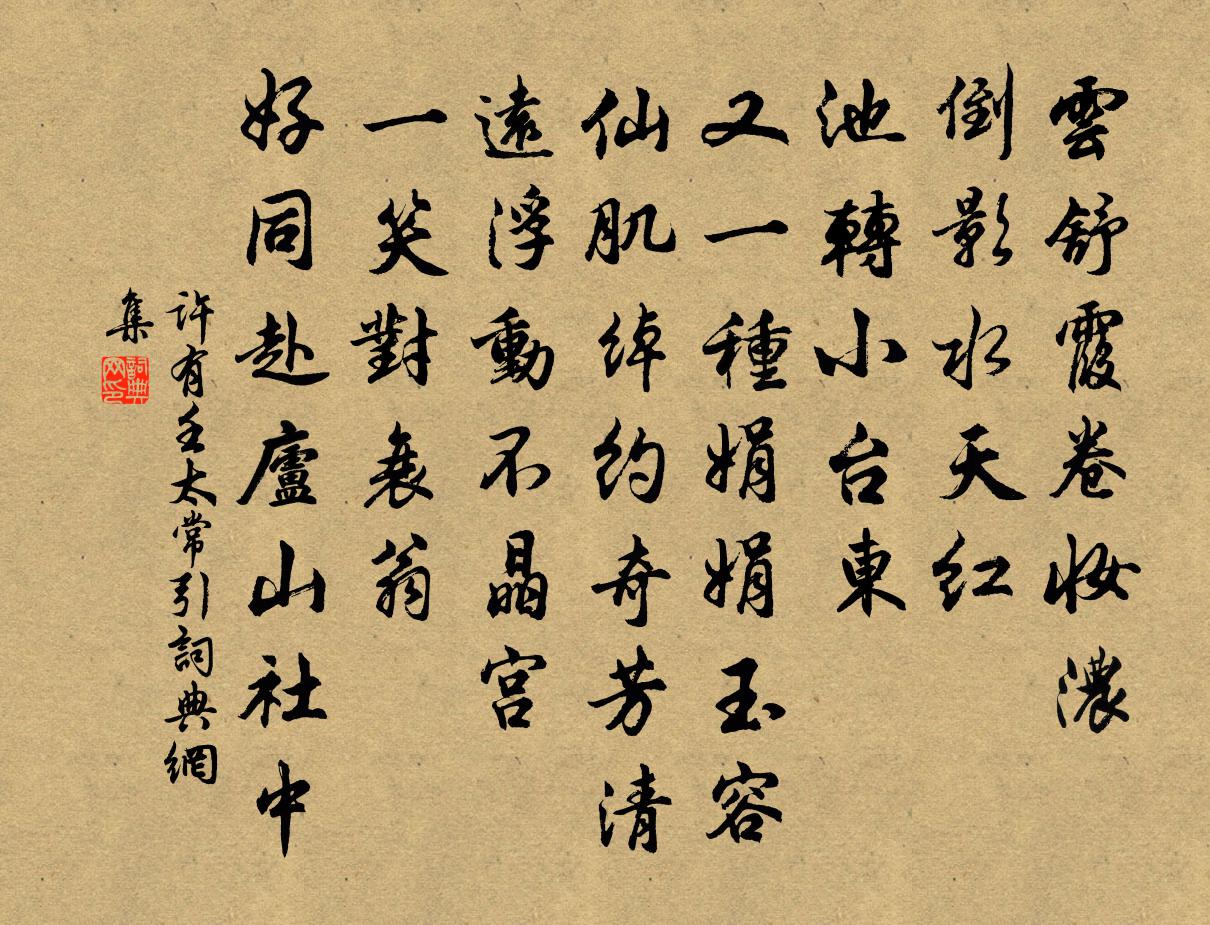 雲舒霞卷妝濃
倒影水天紅
池轉小台東
又一種娟娟玉容
仙肌綽約奇芳清
遠浮動不晶宮
一笑對衰翁
好同赴廬山社中
許有壬太常引詞典網
集
詞典
网印